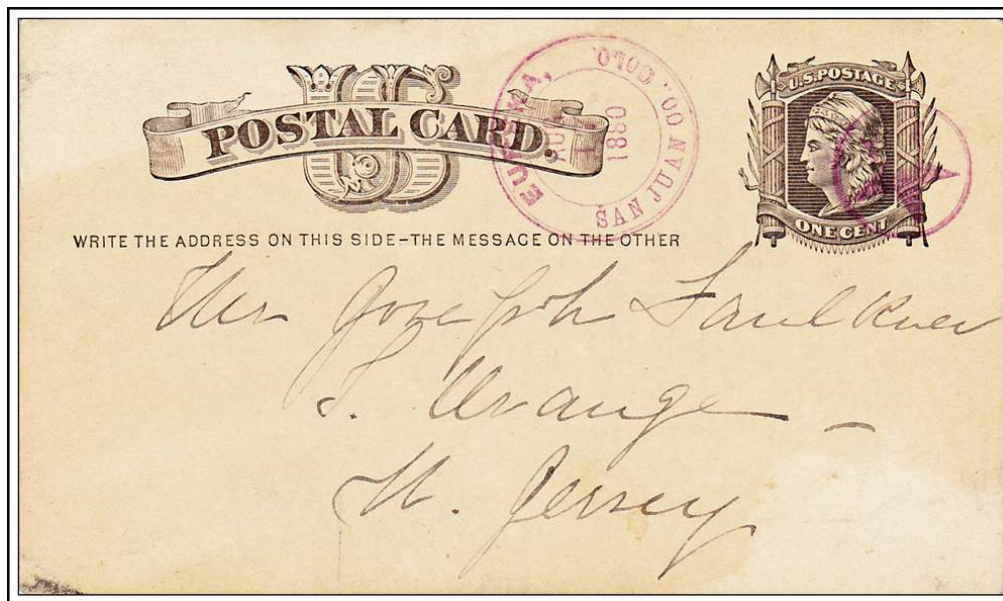 US
POSTAL CARD.
EUREKA,
SAN JUAN CO. COLO.
1880
U.S. POSTAGE
ONE CENT
WRITE THE ADDRESS ON THIS SIDE-THE MESSAGE ON THE OTHER
Mr Joseph Faulkner
S. Orange
N. Jersey